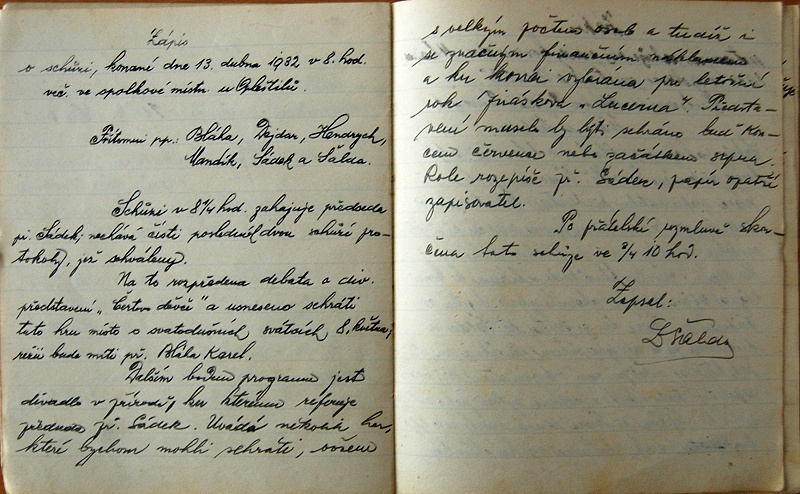 Zápis
o schůzi, konané dne 13. dubna 1932 v 8. hod.
več. ve spolkové místn. u Opleštilů.
Přítomni pp.: Bláha, Dejdar, Hendrych,
Mandík, Sádek a Šalda.
Schůzi v 8 1/4 hod. zahajuje předseda
př. Sádek, nechává čísti posledně dvou schůzí pro-
tokoly, jež schváleny.
Na to rozpředena debata o div.
představení „Čertovo děvče" a usneseno sehráti
tuto hru místo o svatodušních svátcích 8. května;
režii bude míti př. Bláha Karel.
Dalším bodem programu jest
divadlo v přírodě, ku kterému referuje
předseda př. Sádek. Uvádí několik her,
které bychom mohli sehráti, ovšem
s velkým počtem osob a tudíž i
se značným finančním nákladem
a ku konci vybrána pro letošní
rok Jiráskova „Lucerna". Předsta-
vení muselo by býti sehráno buď kon-
cem července nebo začátkem srpna.
Role rozepíše př. Sádek, papír opatří
zapisovatel.
Po přátelské rozmluvě skon-
čena tato schůze ve 3/4 10 hod.
Zapsal:
Šalda